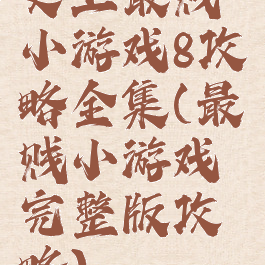 史上最贱
小游戏8攻
略全集(最
贱小游戏
完整版攻
略)